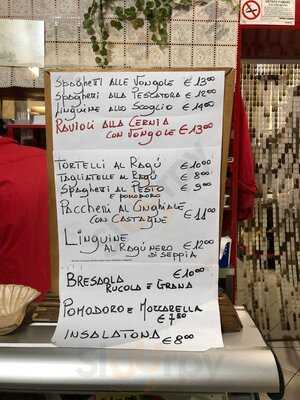 SPAGHETTI ALLE VONGOLE €13,00
SPAGHETTI ALLA PESCATORA €12,00
LINGUINE ALLO SCOGLIO €14,00
RAVIOLI ALLA CERNIA
CON VONGOLE €13,00
TORTELLI AL RAGÚ €10,00
TAGLIATELLE AL RAGÚ €8,00
SPAGHETTI AL PESTO €9,00
E POMODORO
PACCHERI AL CINGHIALE
CON CASTAGNE €11,00
LINGUINE
AL RAGÚ NERO €12,00
DI SEPPIA
BRESAOLA €10,00
RUCOLA E GRANA
POMODORO E MOZZARELLA
€7,50
INSALATONA €8,00